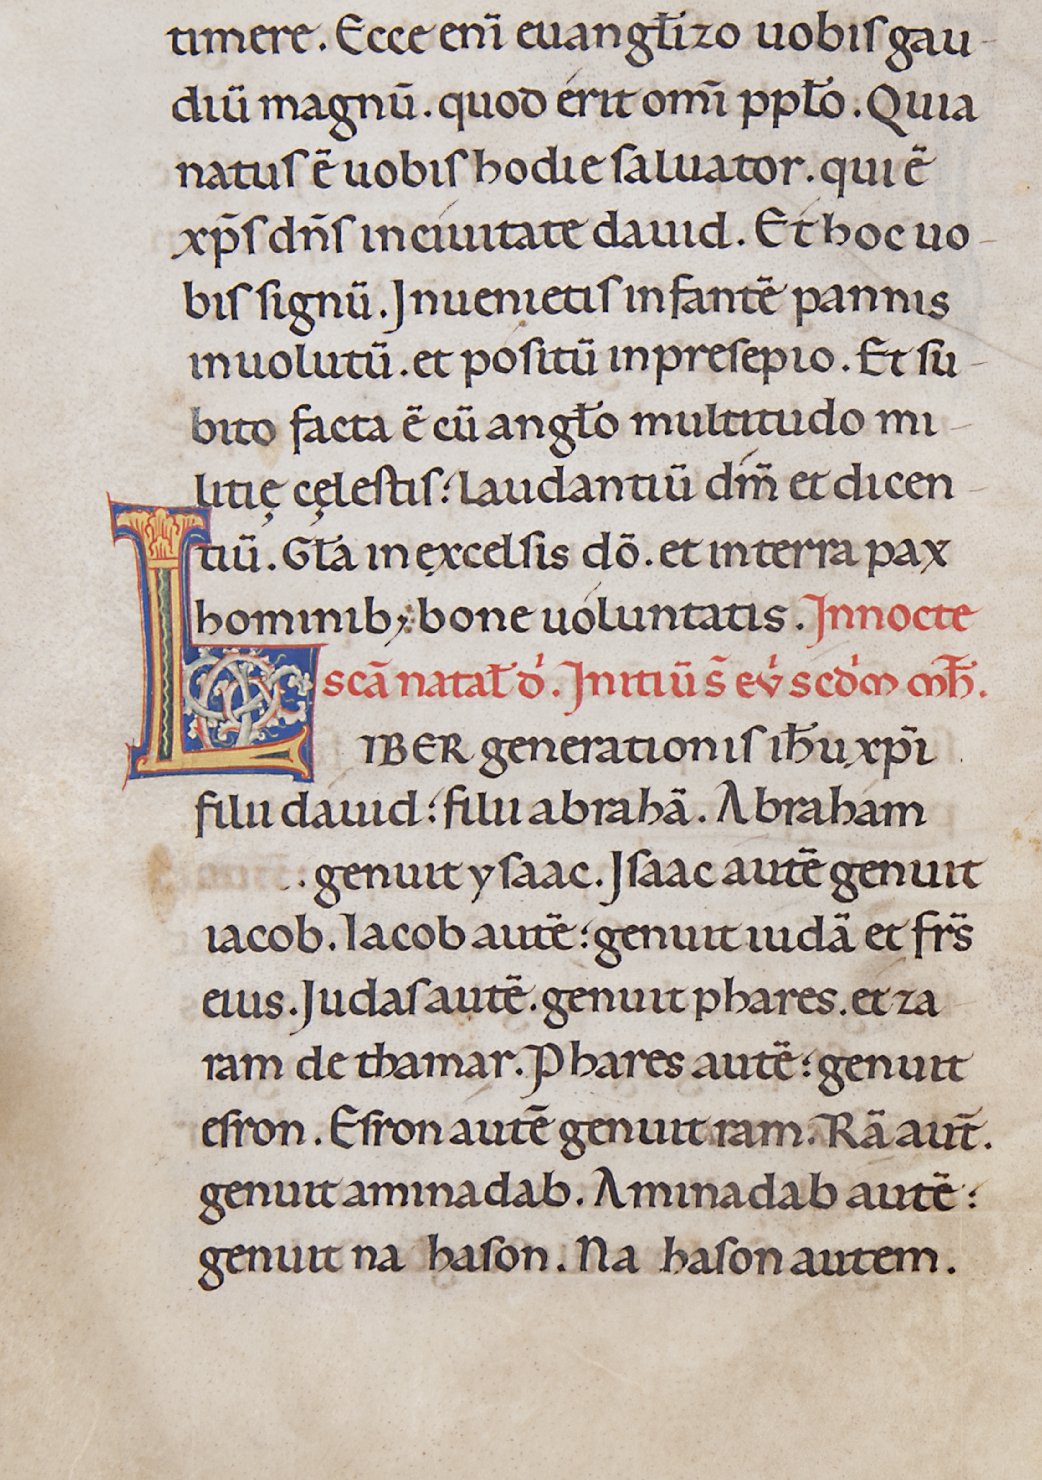 timere. Ecce enī euangl̄izo uobis gau-
diū magnū. quod erit omī ppl̄o. Quia
natus ē uobis hodie saluator. qui ē
xp̄s dn̄s in ciuitate dauid. Et hoc uo-
bis signū. Inuenietis infantē pannis
inuolutū. et positū in presepio. Et su-
bito facta ē cū angl̄o multitudo mi-
litię cęlestis: laudantiū dm̄ et dicen-
tiū. Gl̄a in excelsis dō. et in terra pax
hominib; bone uoluntatis. In nocte
scā natal̄ d̓. Initiū s̄ ev̓ scd̓m mh̄.
LIBER generationis ih̄u xp̄i
filii dauid: filii abrahā. Abraham
. genuit ysaac. Isaac autē genuit
iacob. Iacob autē: genuit iudā et frs̄
eius. Iudas autē. genuit phares. et za
ram de thamar. Phares autē: genuit
esron. Esron autē genuit ram. Rā aut̄.
genuit aminadab. Aminadab autē:
genuit na hason. Na hason autem.